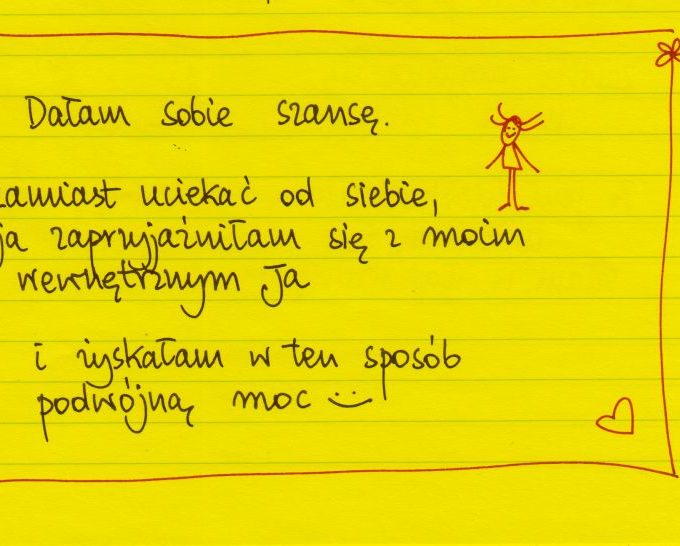 Dałam sobie szansę.
zamiast uciekać od siebie,
ja zaprzyjaźniłam się z moim
wewnętrznym Ja
i zyskałam w ten sposób
podwójną moc :)